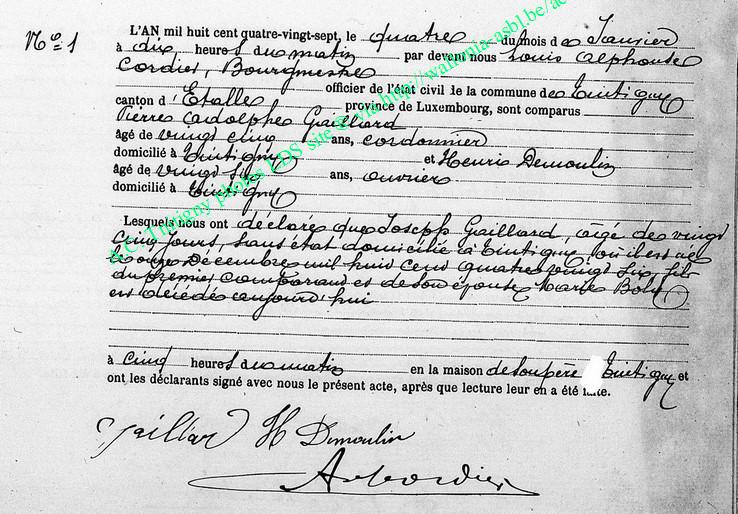 N° 1
L'AN mil huit cent quatre-vingt-sept, le quatre du mois de Janvier
à dix heures du matin par devant nous Louis Alphonse
Cordier, Bourgmestre
officier de l'état civil de la commune de Tintigny
canton d'Etalle province de Luxembourg, sont comparus
Pierre Adolphe Gaillard
âgé de vingt cinq ans, cordonnier
domicilié à Tintigny et Henri Demoulin
âgé de vingt six ans, ouvrier
domicilié à Tintigny
Lesquels nous ont déclaré que Joseph Gaillard, âgé de vingt
cinq jours, sans état domicilié à Tintigny, où il est né
le Décembre mil huit cent quatre vingt six, fils
du premier comparant et de son épouse Marie
est décédé aujourd'hui
à cinq heures du matin en la maison de son père Tintigny et
ont les déclarants signé avec nous le présent acte, après que lecture leur en a été faite.
Gaillard H Demoulin
A Cordier
A.C. Tintigny photos EDS site via http://wallonia-asbl.be/ac